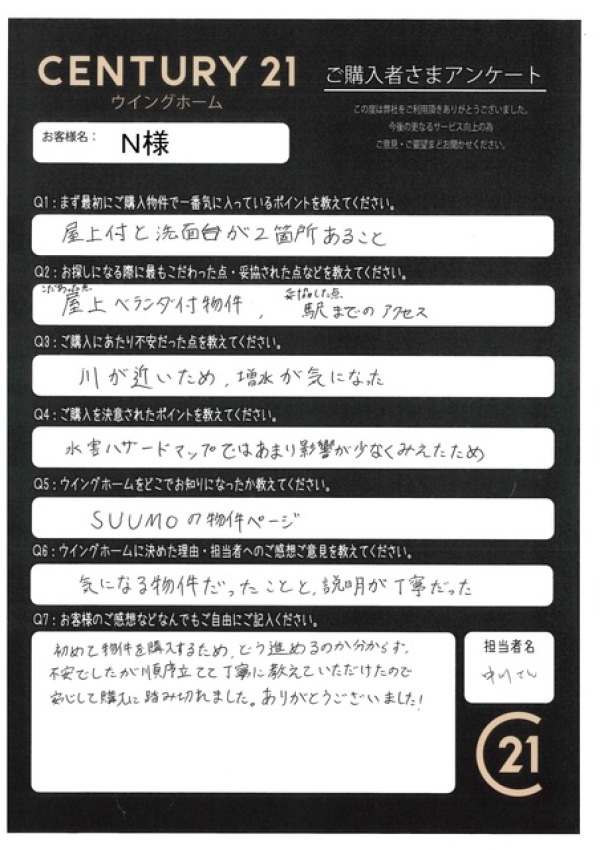 CENTURY 21
ウイングホーム
ご購入者さまアンケート
この度は弊社をご利用頂きありがとうございました。
今後の更なるサービス向上の為
ご意見・ご要望までお聞かせください。
お客様名： N様
Q1：まず最初にご購入物件で一番気に入っているポイントを教えてください。
屋上付と洗面台が2箇所あること
Q2：お探しになる際に最もこだわった点・妥協された点などを教えてください。
こだわった点 妥協した点
屋上ベランダ付物件, 駅までのアクセス
Q3：ご購入にあたり不安だった点を教えてください。
川が近いため, 増水が気になった
Q4：ご購入を決意されたポイントを教えてください。
水害ハザードマップではあまり影響が少なくみえたため
Q5：ウイングホームをどこでお知りになったか教えてください。
SUUMOの物件ページ
Q6：ウイングホームに決めた理由・担当者へのご感想ご意見を教えてください。
気になる物件だったことと, 説明が丁寧だった
Q7：お客様のご感想などなんでもご自由にご記入ください。
初めて物件を購入するため, どう進めるのか分からず,
不安でしたが順序立てて丁寧に教えていただけたので
安心して購入に踏み切れました。ありがとうございました!
担当者名
さん
21